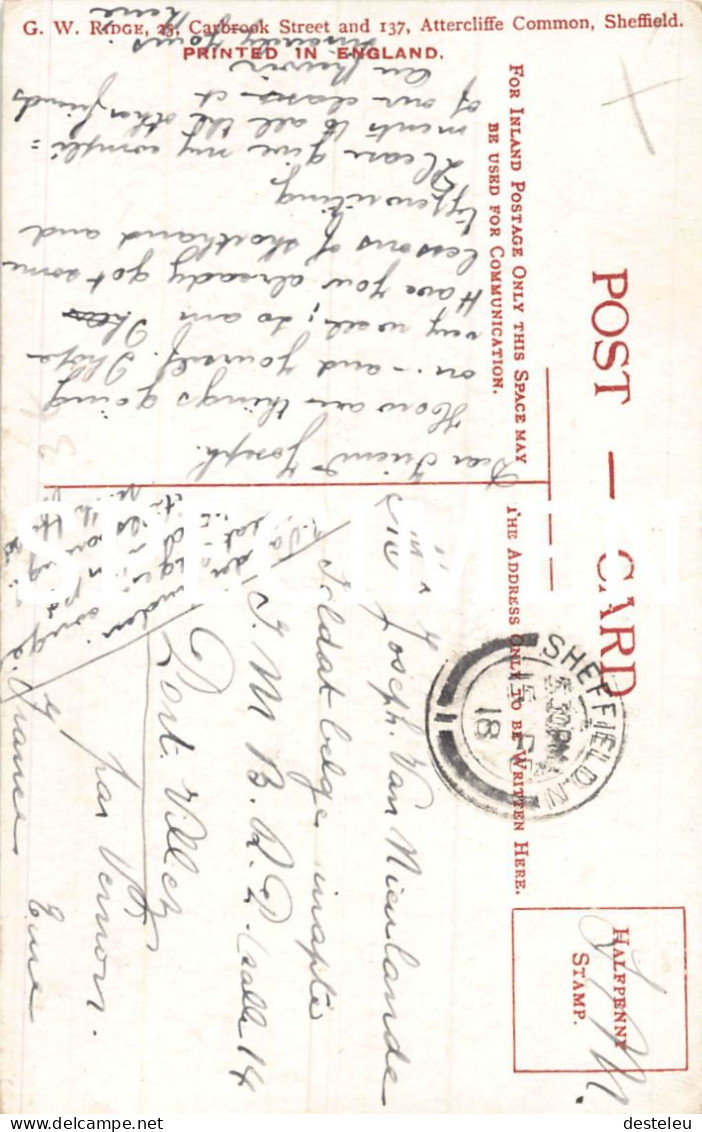 G. W. Ridge, 25, Carbrook Street and 137, Attercliffe Common, Sheffield.
PRINTED IN ENGLAND.
POST — CARD
For Inland Postage Only this Space may
be used for Communication.
The Address Only to be Written Here.
Halfpenny
Stamp.
S. M.
SHEFFIELD.N
5 30PM
15
18
Dear Friend Joseph.
How are things going
on - and yourself. I hope
very well; so am I
Have you already got some
lessons of shorthand and
typewriting
Please give my compli=
ments to all the other friends
of our class - et
au revoir
Sincerely yours
René
Joseph. Van Nieulande
Soldat belge inapte
I M B. A. D. Salle 14
Port. Villez
par Vernon.
Eure
France
SPECIMEN
desteleu